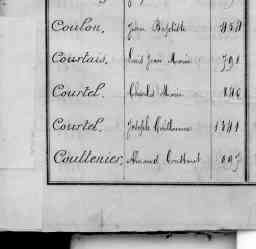 Coulon. Jean Baptiste
Courtais. Louis Jean Marie 791
Courtel. Charles Marie 846
Courtel. Joseph Guillaume 1341
Couttenier. Armand Cuthbert